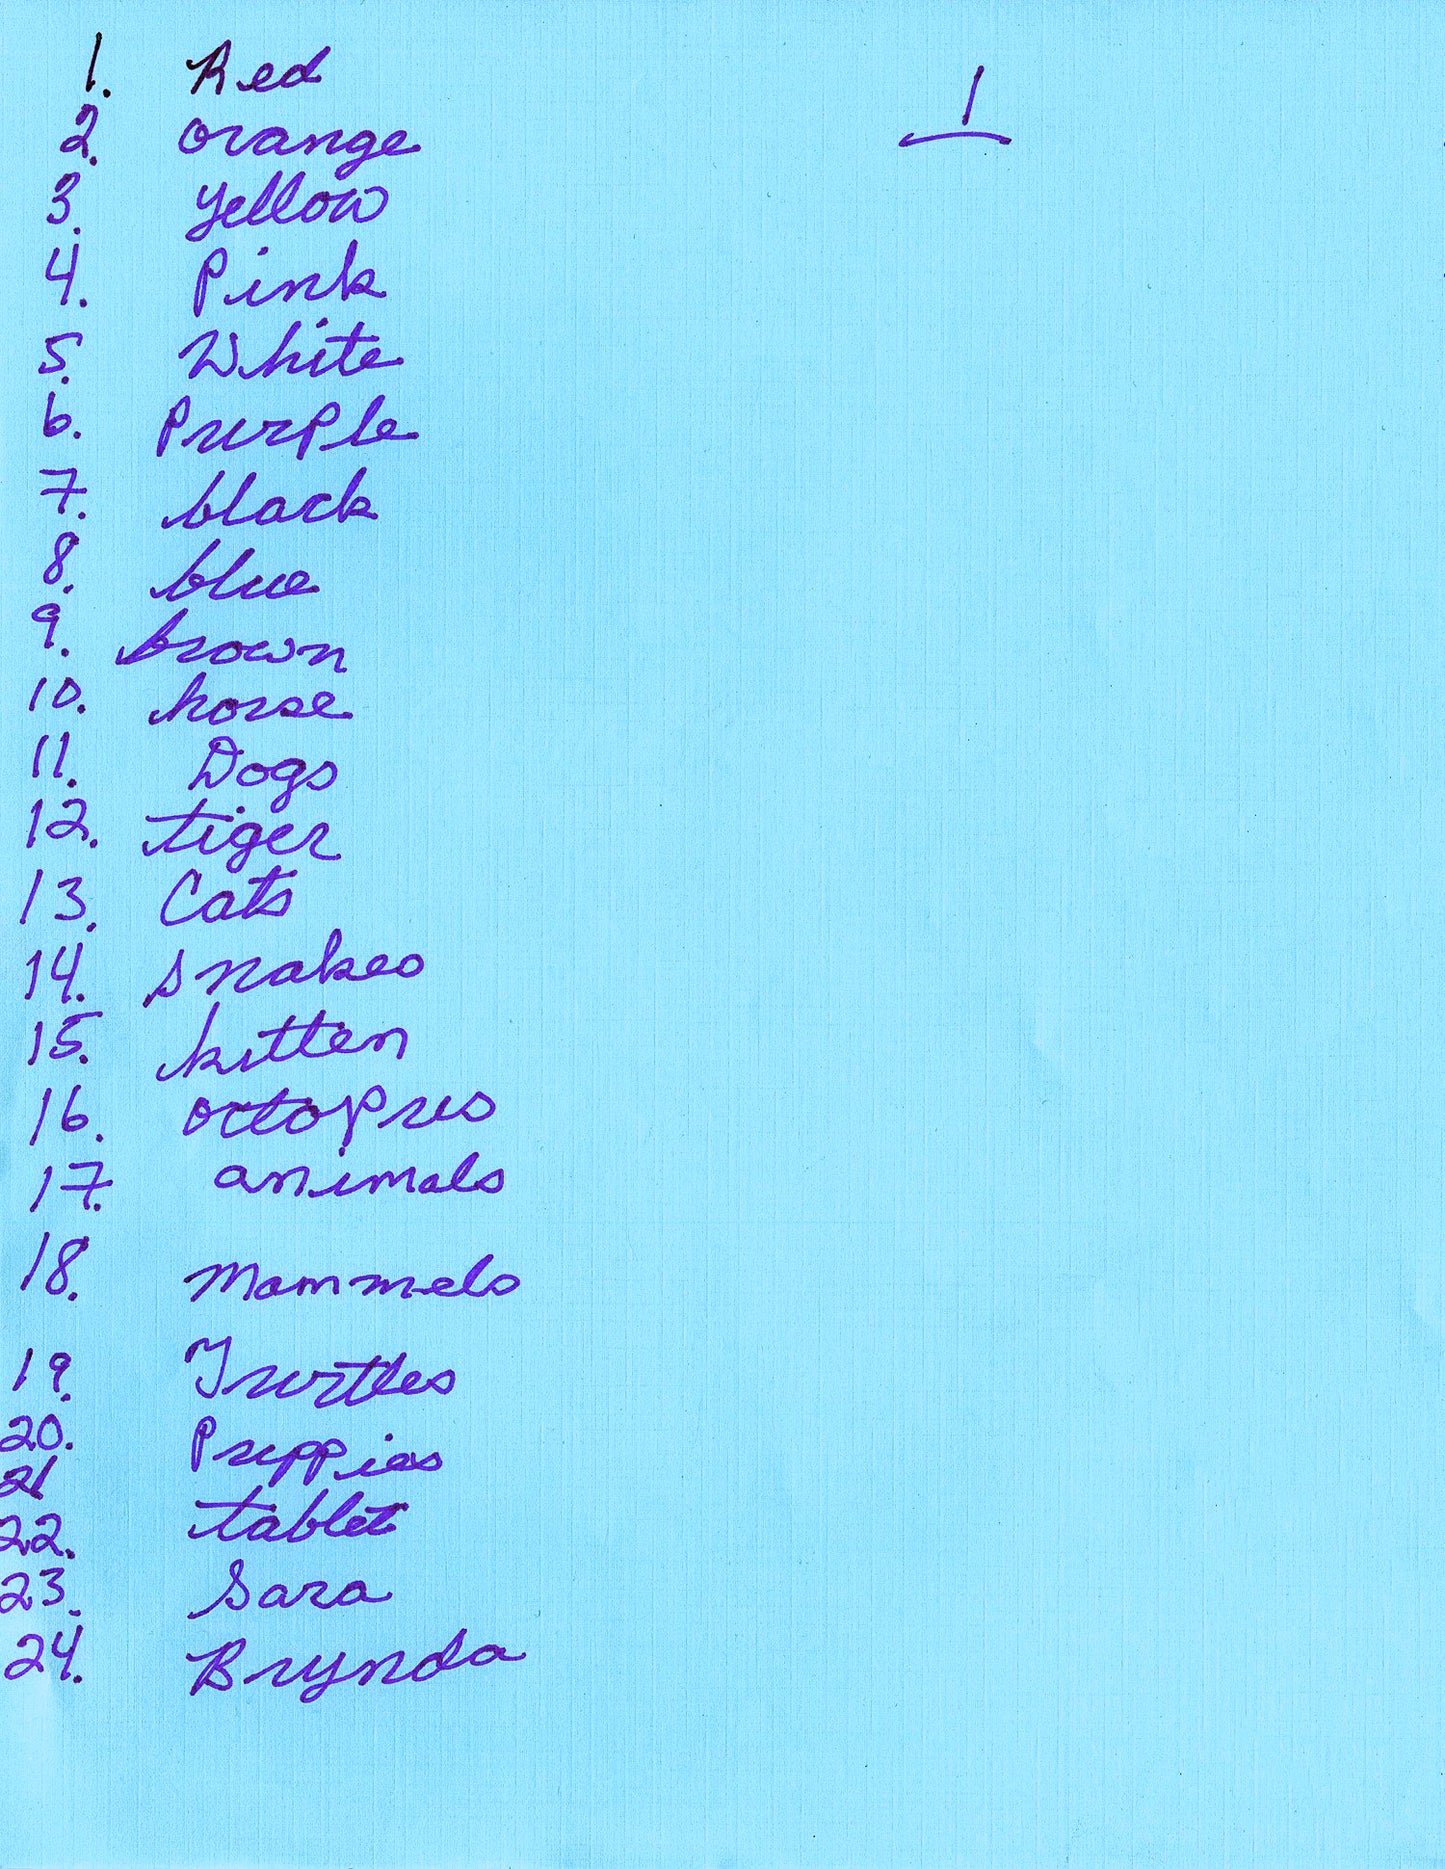 1. Red
1
2. orange
3. yellow
4. Pink
5. White
6. Purple
7. black
8. blue
9. brown
10. horse
11. Dogs
12. tiger
13. Cats
14. snakes
15. kitten
16. octopus
17. animals
18. Mammels
19. Turtles
20. Puppies
21
22. tablet
23. Sara
24. Brynda